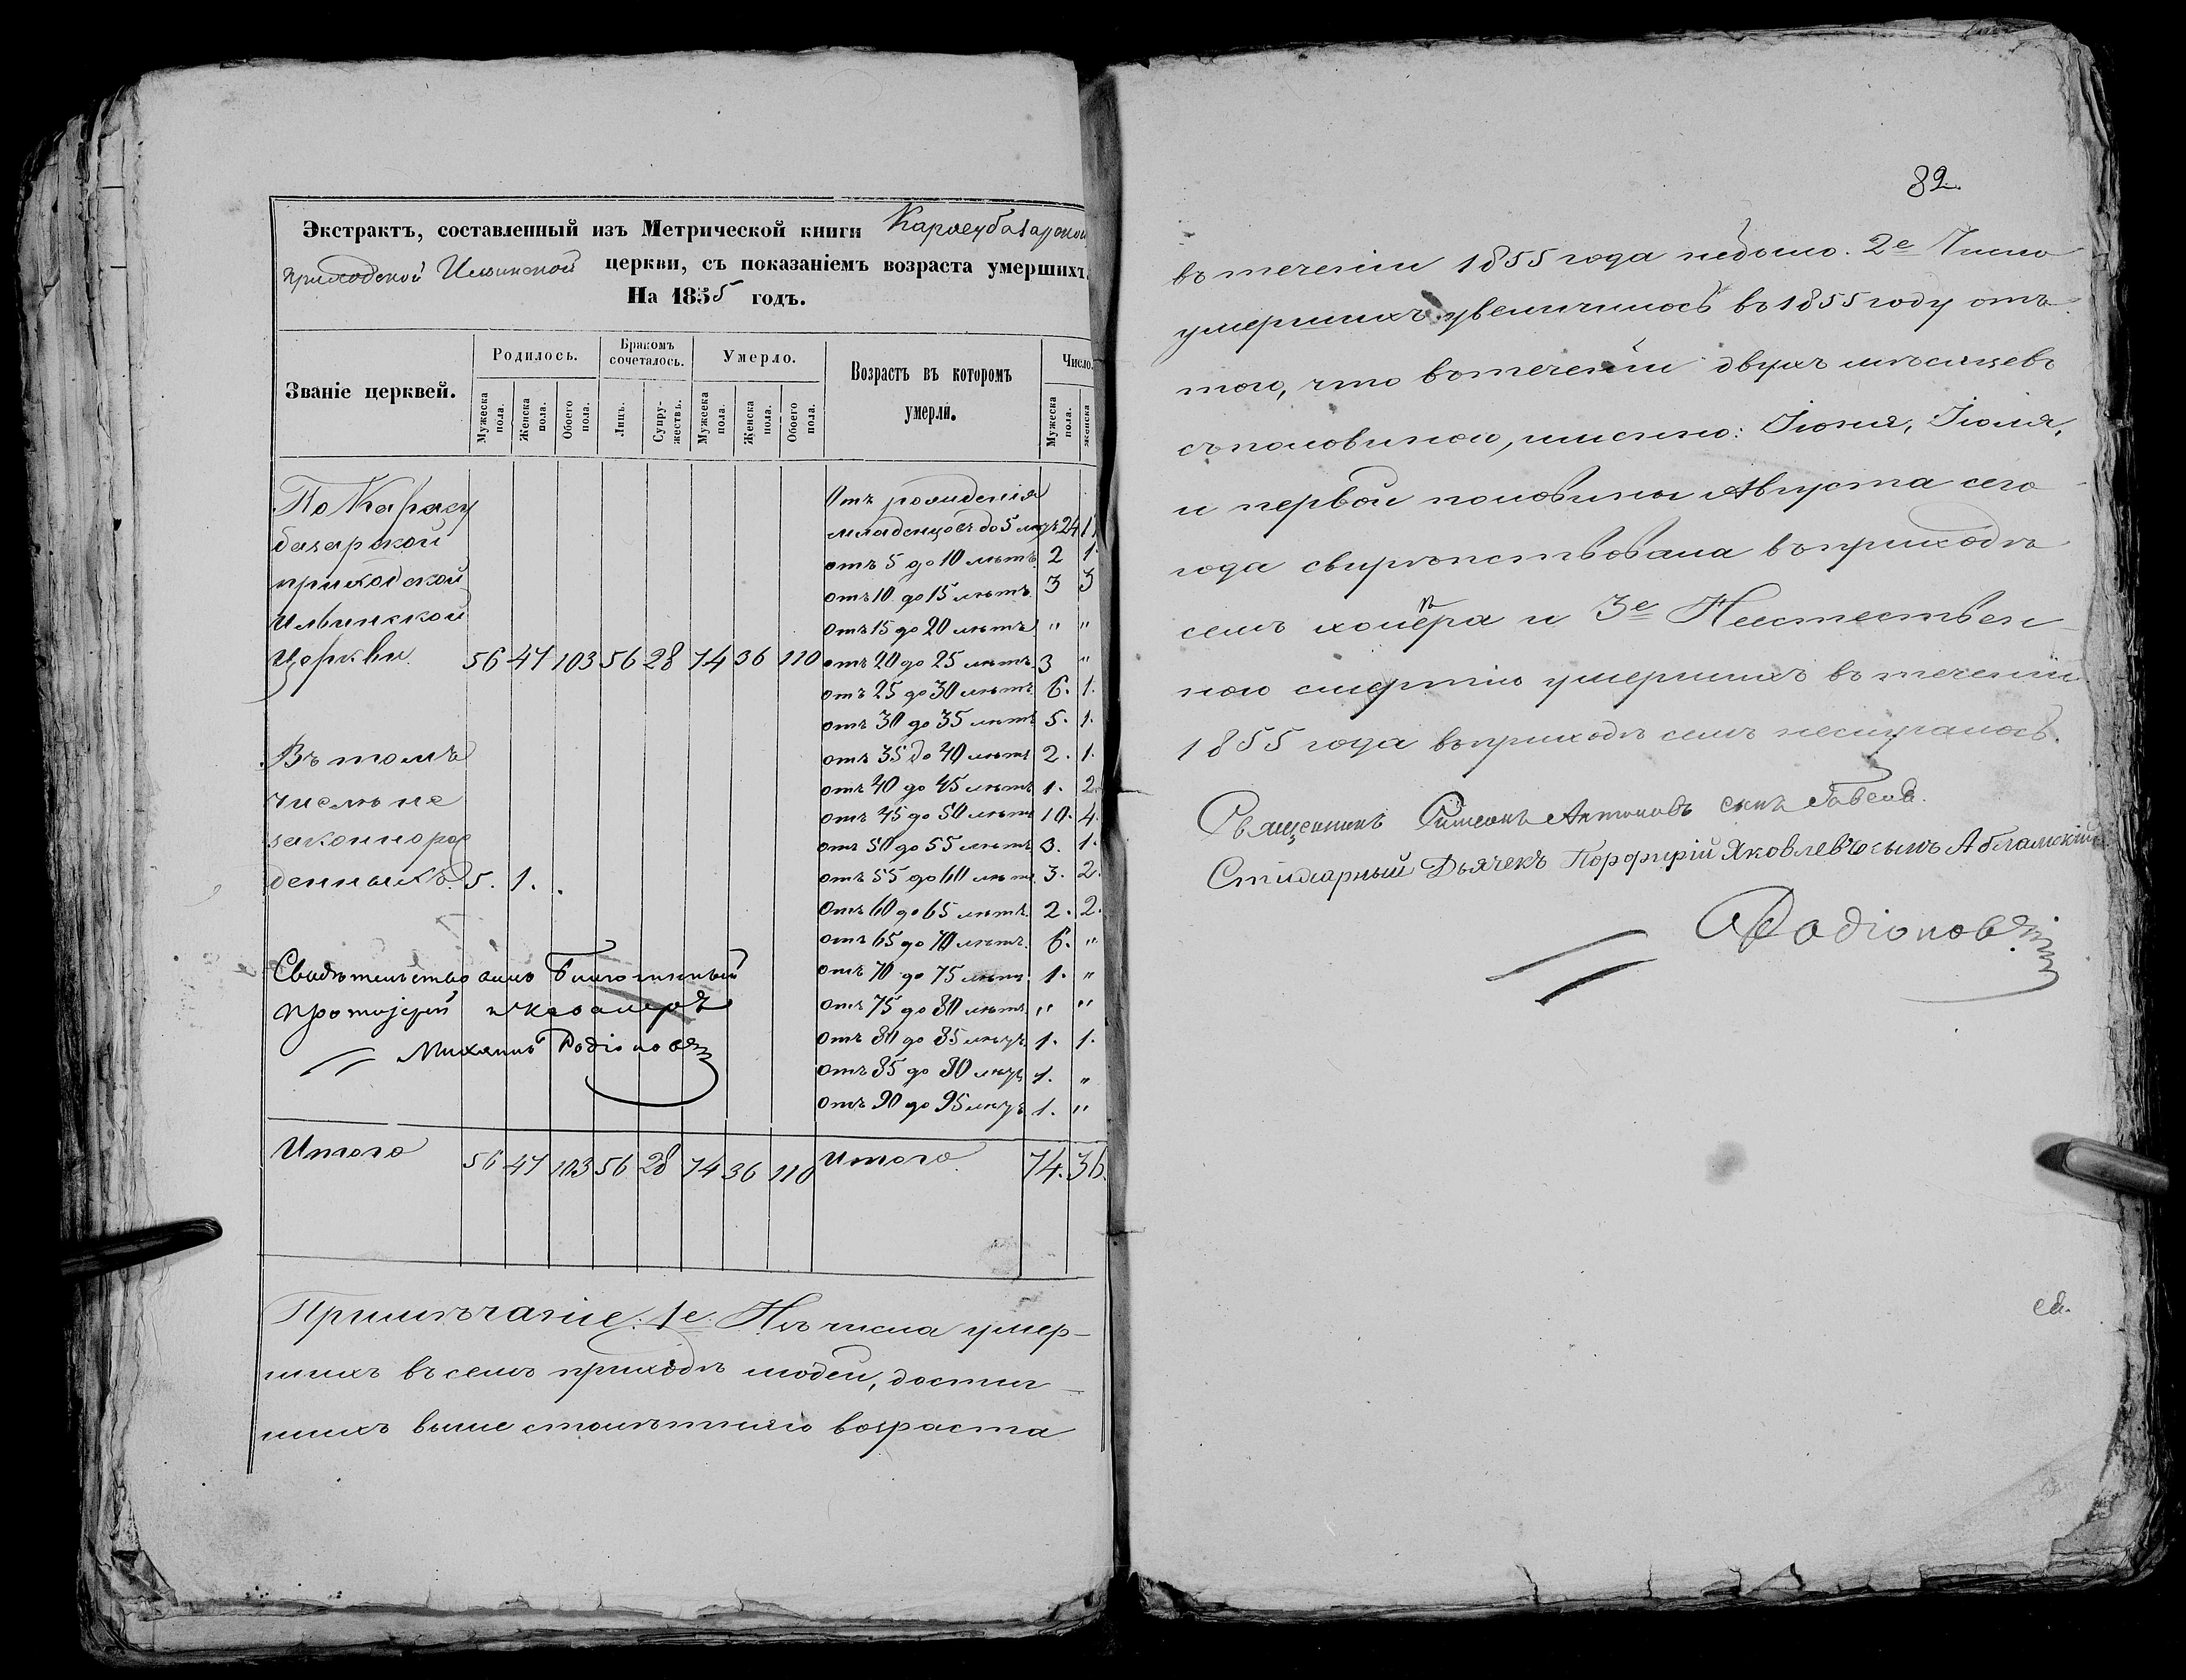 Экстрактъ, составленный изъ Метрической книги Карасубазарской
приходской Ильинской церкви, съ показаніемъ возраста умершихъ.
На 1855 годъ.
Званіе церквей.
Родилось.
Бракомъ сочеталось.
Умерло.
Возрастъ въ которомъ умерли.
Число.
Мужеска пола.
Женска пола.
Обоего пола.
Лицъ.
Супружествъ.
Мужеска пола.
Женска пола.
Обоего пола.
Мужеска пола.
Женска
По Карасу
базарской
приходской
Ильинской
Церкви. 56 47 103 56 28 74 36 110
Въ томъ
числѣ не
законнорож
денныхъ. 5. 1.
Отъ рожденія
младенцевъ до 5 лѣтъ 24 17
отъ 5 до 10 лѣтъ. 2 1.
отъ 10 до 15 лѣтъ. 3 3
отъ 15 до 20 лѣтъ " "
отъ 20 до 25 лѣтъ. 3 "
отъ 25 до 30 лѣтъ 6. 1.
отъ 30 до 35 лѣтъ 5. 1.
отъ 35 до 40 лѣтъ 2. 1.
отъ 40 до 45 лѣтъ 1. 2.
отъ 45 до 50 лѣтъ 10. 4.
отъ 50 до 55 лѣтъ 3. 1.
отъ 55 до 60 лѣтъ. 3. 2.
отъ 60 до 65 лѣтъ. 2. 2.
отъ 65 до 70 лѣтъ. 6. "
отъ 70 до 75 лѣтъ. 1. "
отъ 75 до 80 лѣтъ " "
отъ 80 до 85 лѣтъ. 1. 1.
отъ 85 до 90 лѣтъ 1. "
отъ 90 до 95 лѣтъ 1. "
Свидѣтельствовалъ Благочинный
протоіерей и кавалеръ
Михаилъ Родіоновъ
Итого 56 47 103 56 28 74 36 110 Итого. 74. 36.
Примѣчаніе: 1е. Изъ числа умер-
шихъ въ семъ приходѣ людей, достиг-
шихъ выше столѣтняго возраста
82.
въ теченіи 1855 года небыло. 2е Число
умершихъ увеличилось въ 1855 году отъ
того, что въ теченіи двухъ мѣсяцевъ
съ половиною, именно: Іюня, Іюля,
и первой половины Августа сего
года свирѣпствовала въ приходѣ
семъ холера и 3е Неестествен-
ною смертію умершихъ въ теченіи
1855 года въ приходѣ семъ неслучалось.
Священникъ Симеонъ Антоновъ сынъ
Стихарный Дьячекъ Порфирій Яковлевъ сынъ Абламскій
Родіоновъ